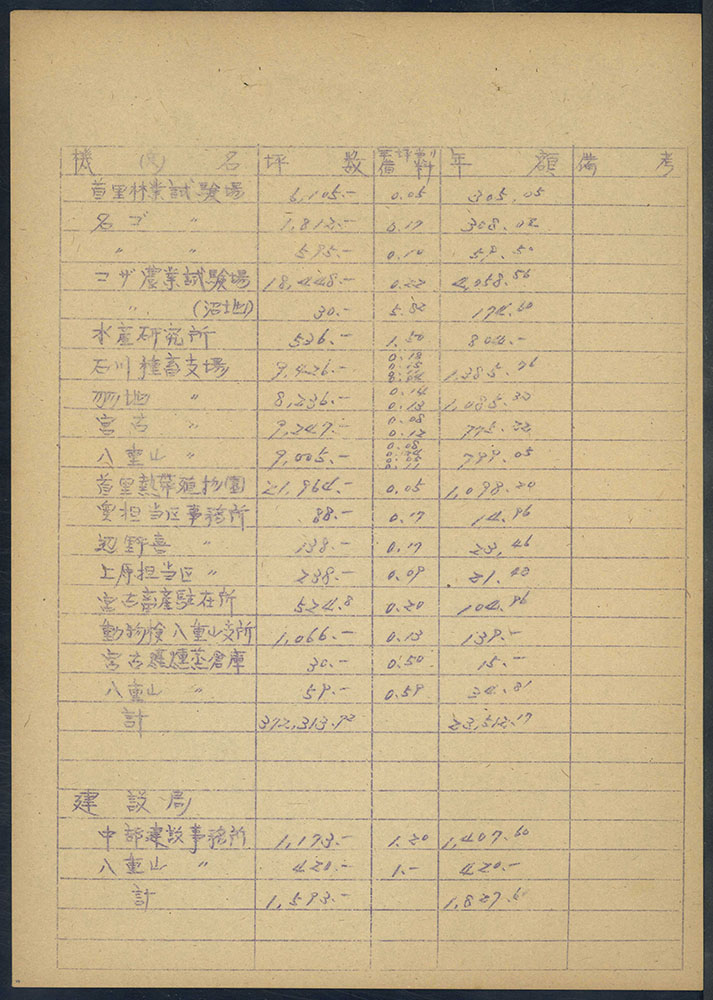 機 関 名 坪 数 年坪当り借料 年 額 備 考
首里林業試験場 6,105.- 0.05 305.05
名ゴ 〃 1,812.- 0.17 308.08
〃 〃 595.- 0.10 59.50
コザ農業試験場 18,448.- 0.22 4,058.56
〃 (沼地) 30.- 5.82 174.60
水産研究所 536.- 1.50 804.-
石川種畜支場 9,426.- 0.18 0.15 1,385.76
羽地 〃 8,236.- 0.14 0.13 1,085.32
宮古 〃 9,247.- 0.08 0.12 775.22
八重山 〃 9,005.- 0.08 0.05 0.11 799.05
首里熱帯殖物園 21,964.- 0.05 1,098.20
奥担当区事務所 88.- 0.17 14.96
辺野喜 〃 138.- 0.17 23.46
上原担当区 〃 238.- 0.09 21.42
宮古畜産駐在所 524.8 0.20 104.96
動物検八重山支所 1,066.- 0.13 139.-
宮古燻蒸倉庫 30.- 0.50 15.-
八重山 〃 59.- 0.59 34.81
計 372,313.92 23,512.17
建設局
中部建設事務所 1,173.- 1.20 1,407.60
八重山 〃 420.- 1.- 420.-
計 1,593.- 1,827.60